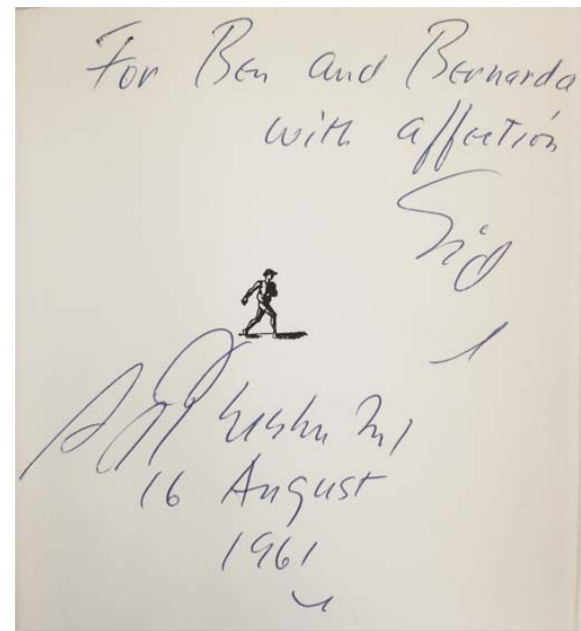 For Ben and Bernarda
with affection
Sid
16 August
1961